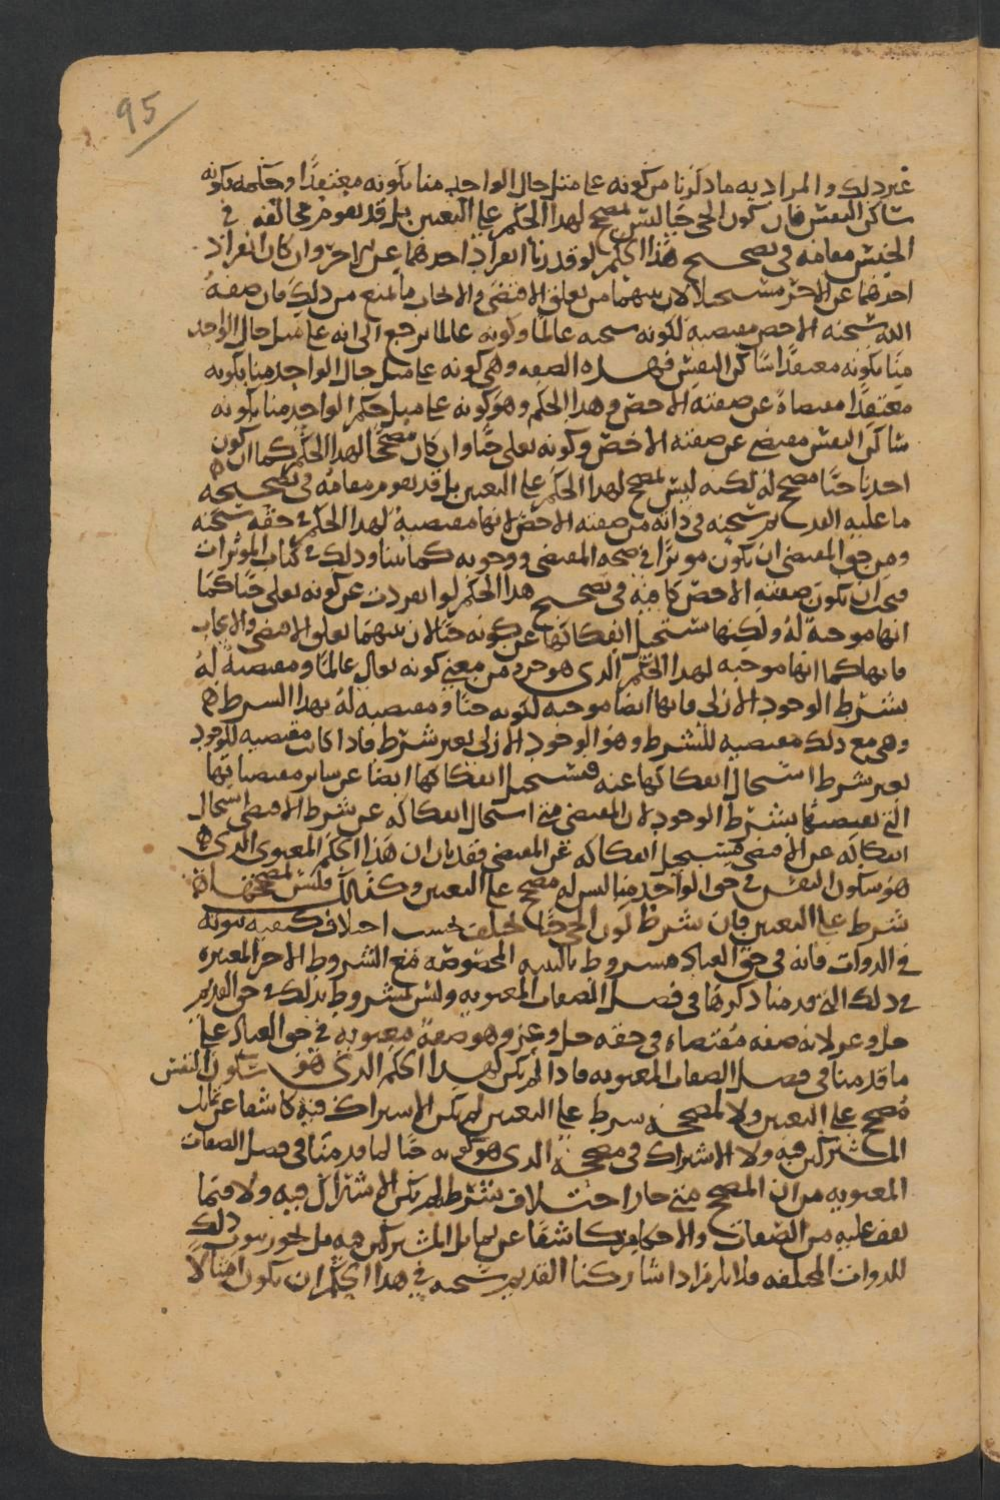 95
غير ذلك والمراد به ما ذكرنا من كونه على مثل حال الواحد منا بكونه معتقدًا وحكمه بكونه
ساكن النفس فان كون الحي حيا ليس بمصحح لهذا الحكم على التعيين بل قد يقوم مخالفه في
الجنس مقامه في تصحيح هذا الحكم لو قدرنا انفراد احدهما عن الاخر وان كان انفراد
احدهما عن الاخر مستحيلا لان بينهما من تعلق الاقتضى والايجاب ما يمنع من ذلك فان صفة
الله سبحنه الاخص مقتضية لكونه سبحنه عالما وكونه عالما يرجع الى انه على مثل حال الواحد
منا بكونه معتقدًا ساكن النفس فهذه الصفه وهي كونه على مثل حال الواحد منا بكونه
معتقدًا مقتضاة عن صفته الاخص وهذا الحكم وهو كونه على مثل حكم الواحد منا بكونه
ساكن النفس مقتضى عن صفته الاخص وكونه تعلى حيًّا وان كان مصححًا لهذا الحكم كما ان كون
احدنا حيًّا مصحح له لكنه ليس بمصحح لهذا الحكم على التعيين بل قد يقوم مقامه في تصحيحه
ما عليه القديم سبحنه في ذاته من صفته الاخص لانها مقتضية لهذا الحكم في حقه سبحنه
ومن حق المقتضي ان يكون موثرًا في صحه المقتضى ووجوبه كما بينا ذلك في كتاب الموثرات
فيجب ان تكون صفته الاخص كافية في تصحيح هذا الحكم لو انفردت عن كونه تعلى حيًّا كما
انها موجبة له ولكنها يستحيل انفكاكها عن كونه حيًّا لان بينهما تعلق الاقتضى والايجاب
فانها كما انها موجبه لهذا الحكم الذي هو جزء من معنى كونه تعالى عالمًا ومقتضية له
بشرط الوجود الازلي فانها ايضا موجبه لكونه حيًّا ومقتضيه له بهذا الشرط
وهي مع ذلك مقتضيه للشرط وهو الوجود الازلي بغير شرط فاذا كانت مقتضيه للوجود
بغير شرط استحال انفكاكها عنه فيستحيل انفكاكها ايضا عن ساير مقتضياتها
التي تقتضيها بشرط الوجود لان المقتضي متى استحال انفكاكه عن شرط الاقتضى استحال
انفكاكه عن الاقتضى فيستحيل انفكاكه عن المقتضى فقد بان ان هذا الحكم المعنوي الذي
هو سكون النفس في حق الواحد منا ليس له مصحح على التعيين وكذلك فليس لمصححه
شرط على التعيين فان شرط كون الحي حيًّا يختلف بحسب اختلاف كيفيه ثبوته
في الذوات فانه في حق العباد مشروط بالبنيه المخصوصه مع الشروط الاخر المعتبره
في ذلك التي قدمنا ذكرها في فصل الصفات المعنويه وليس بمشروط بذلك في حق القديم
جل وعز لانه صفه مقتضاه في حقه جل وعز وهو صفة معنويه في حق العباد على
ما قدمنا في فصل الصفات المعنويه فاذا لم يكن لهذا الحكم الذي هو سكون النفس
مصحح على التعيين ولا لمصححه شرط على التعيين لم يكن الاشتراك فيه كاشفا عن تماثل
المشتركين فيه ولا الاشتراك في مصححه الذي هو كونه حيًّا لما قدمنا في فصل الصفات
المعنويه من ان المصحح متى جاز اختلاف شرطه لم يكن الاشتراك فيه ولا فيما
يقف عليه من الصفات والاحكام كاشفًا عن تماثل المشتركين فيه بل يجوز ثبوت ذلك
للذوات المختلفه فلا يلزم اذا شاركنا القديم سبحنه في هذا الحكم ان يكون امثالاً